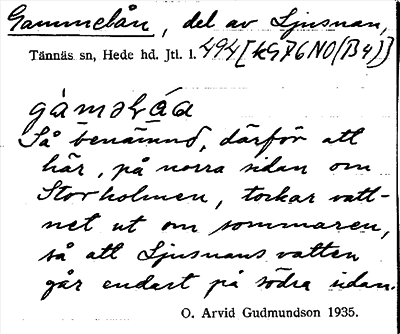 Gammelån, del av Ljusnan,
Tännäs sn, Hede hd. Jtl. l. 494 [kG76NO(B4)]
Så benämnd, därför att
här, på norra sidan om
Storholmen, torkar vatt-
net ut om sommaren,
så att Ljusnans vatten
går endast på södra sidan.
O. Arvid Gudmundson 1935.